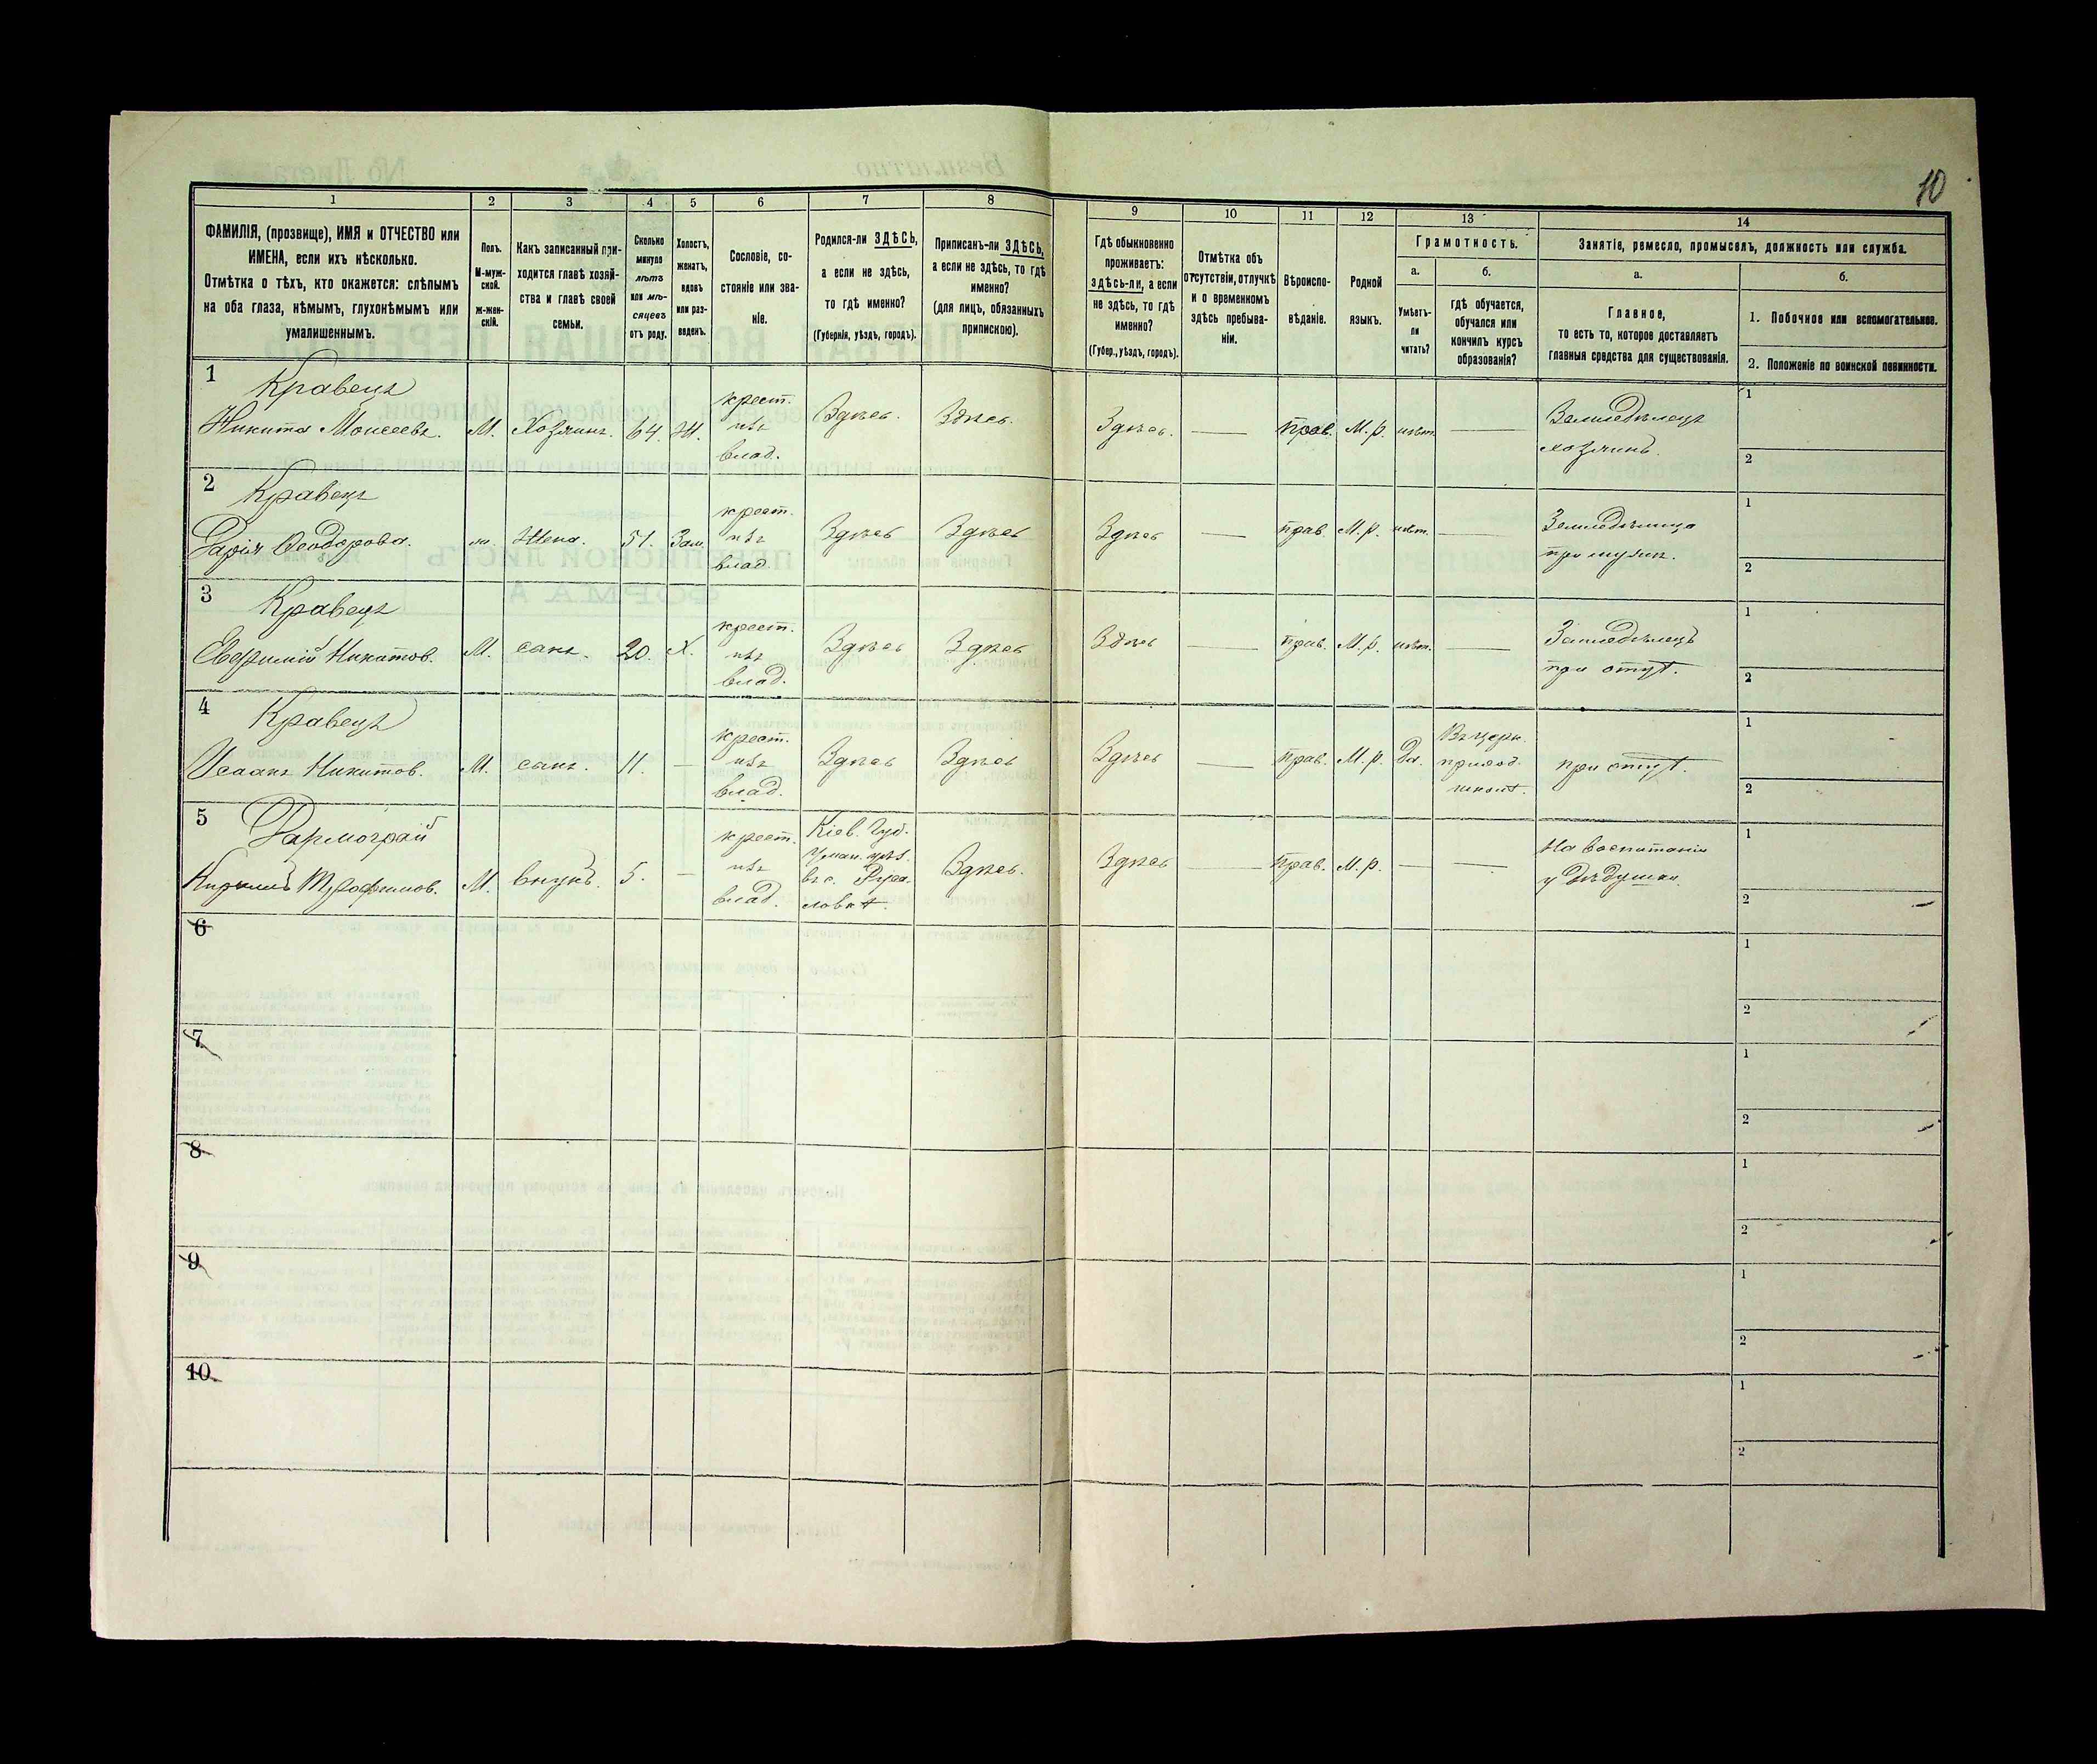 10
1 2 3 4 5 6 7 8 9 10 11 12 13 14
ФАМИЛІЯ, (прозвище), ИМЯ и ОТЧЕСТВО или
ИМЕНА, если ихъ нѣсколько.
Отмѣтка о тѣхъ, кто окажется: слѣпымъ
на оба глаза, нѣмымъ, глухонѣмымъ или
умалишеннымъ.
Полъ.
М-муж-
ской.
ж-жен-
скій.
Какъ записанный при-
ходится главѣ хозяй-
ства и главѣ своей
семьи.
Сколько
минуло
лѣтъ
или мѣ-
сяцевъ
отъ роду.
Холостъ,
женатъ,
вдовъ
или раз-
веденъ.
Сословіе, со-
стояніе или зва-
ніе.
Родился-ли ЗДѢСЬ,
а если не здѣсь,
то гдѣ именно?
(Губернія, уѣздъ, городъ).
Приписанъ-ли ЗДѢСЬ,
а если не здѣсь, то гдѣ
именно?
(для лицъ, обязанныхъ
припискою).
Гдѣ обыкновенно
проживаетъ:
здѣсь-ли, а если
не здѣсь, то гдѣ
именно?
(Губер., уѣздъ, городъ).
Отмѣтка объ
отсутствіи, отлучкѣ
и о временномъ
здѣсь пребыва-
ніи.
Вѣроиспо-
вѣданіе.
Родной
языкъ.
Грамотность.
а.
Умѣетъ-
ли
читать?
б.
гдѣ обучается,
обучался или
кончилъ курсъ
образованія?
Занятіе, ремесло, промыселъ, должность или служба.
а.
Главное,
то есть то, которое доставляетъ
главныя средства для существованія.
б.
1. Побочное или вспомогательное.
2. Положеніе по воинской повинности.
1 Кравецъ
Никита Моисеевъ. М. Хозяинъ. 64. Ж. крест. изъ влад. Здѣсь. Здѣсь. Здѣсь. — прав. М.р. нѣт. — Земледѣлецъ хозяинъ. 1 2
2 Кравецъ
Дарія Ѳеодорова. ж. Жена. 51. Зам. крест. изъ влад. Здѣсь Здѣсь Здѣсь — прав. М.р. нѣт. — при мужѣ. 1 2
3 Кравецъ
Евфимій Никитов. М. сынъ. 20. Х. крест. изъ влад. Здѣсь Здѣсь Здѣсь — прав. М.р. нѣт. — Земледѣлецъ при отцѣ. 1 2
4 Кравецъ
Исаакъ Никитов. М. сынъ. 11. — крест. изъ влад. Здѣсь Здѣсь Здѣсь — прав. М.р. Да. Въ церк. приход. школѣ. при отцѣ. 1 2
5 Дармограй
Кирилъ Трофимов. М. внукъ. 5. — крест. изъ влад. Кіев. Губ. Уман. уѣз. въ с. Здѣсь. Здѣсь — прав. М.р. — — На воспитаніи у дѣдушки. 1 2
6 1 2
7 1 2
8 1 2
9 1 2
10 1 2